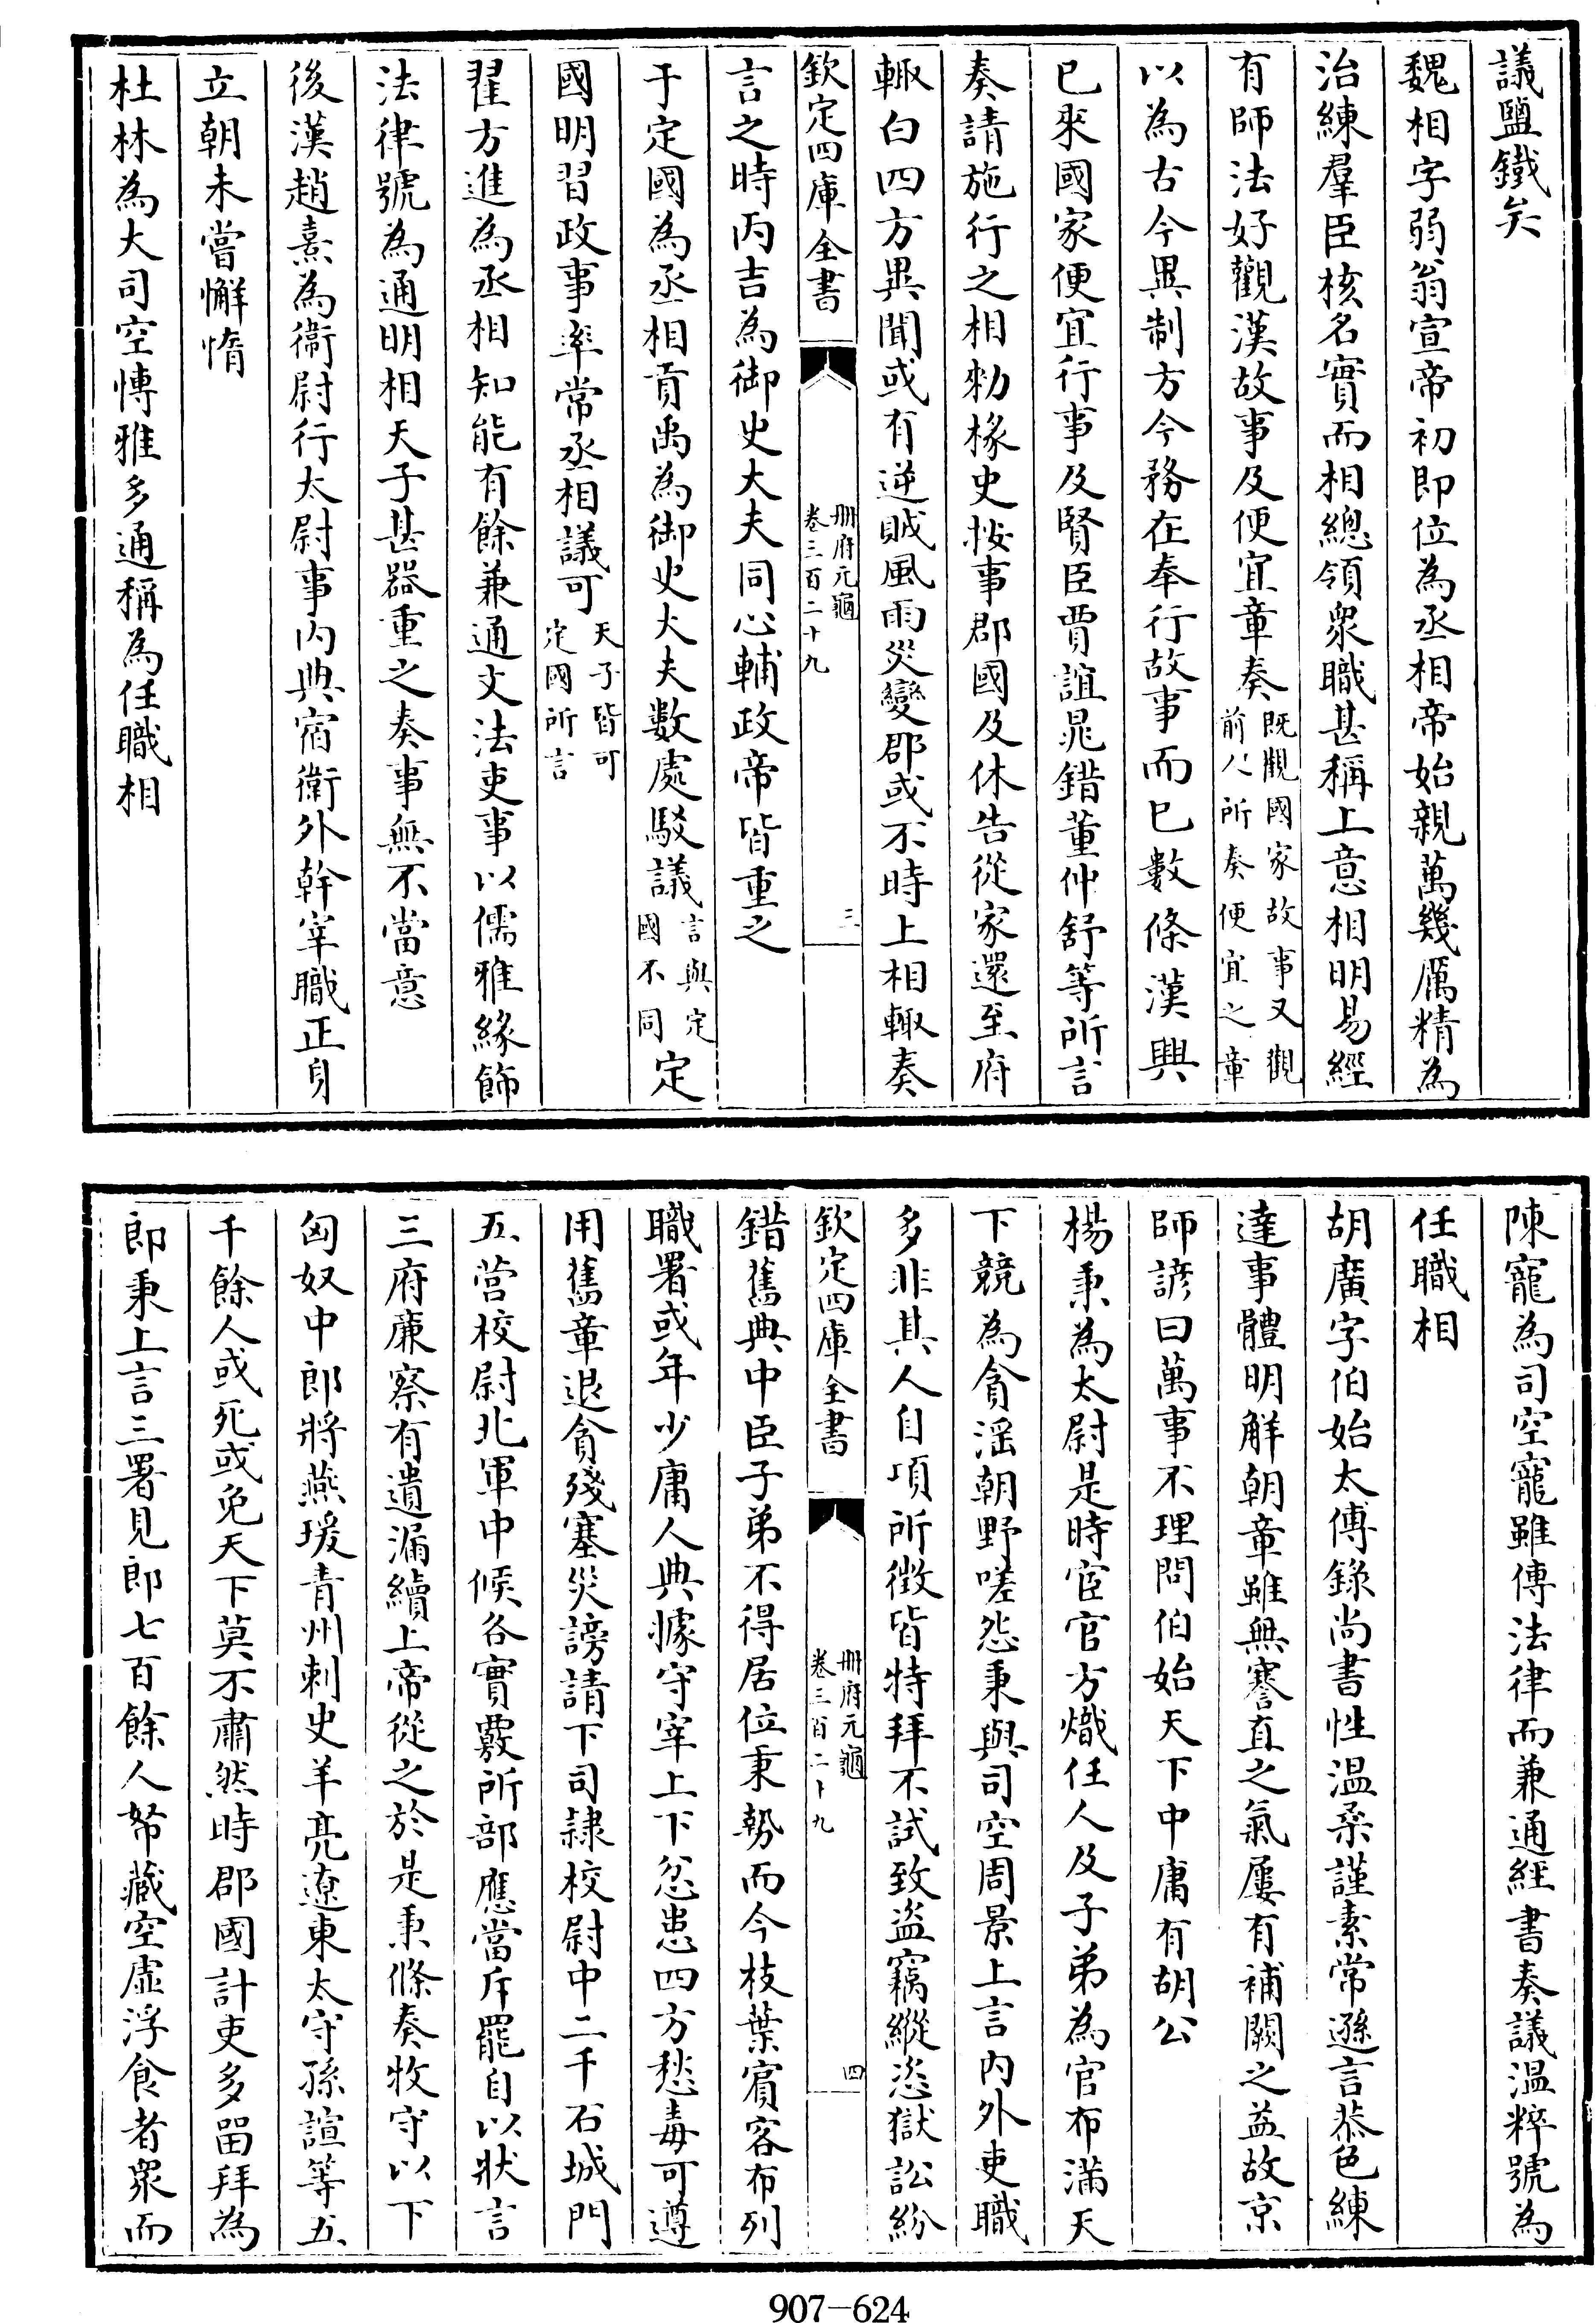 議鹽鐵矣
魏相字弱翁宣帝初即位為丞相帝始親萬幾厲精為
治練羣臣核名實而相總領衆職甚稱上意相明易經
有師法好觀漢故事及便宜章奏既觀國家故事又觀前人所奏便宜之章
以為古今異制方今務在奉行故事而已數條漢興
已來國家便宜行事及賢臣賈誼晁錯董仲舒等所言
奏請施行之相勑掾史按事郡國及休告從家還至府
輙白四方異聞或有逆賊風雨災變郡或不時上相輙奏
欽定四庫全書 冊府元龜 卷三百二十九 三
言之時丙吉為御史大夫同心輔政帝皆重之
于定國為丞相貢禹為御史大夫數處駁議言與定國不同定
國明習政事率常丞相議可天子皆可定國所言
翟方進為丞相知能有餘兼通文法吏事以儒雅緣飾
法律號為通明相天子甚器重之奏事無不當意
後漢趙熹為衞尉行太尉事内典宿衞外幹宰職正身
立朝未嘗懈惰
杜林為大司空愽雅多通稱為任職相
陳寵為司空寵雖傳法律而兼通經書奏議温粹號為
任職相
胡廣字伯始太傅錄尚書性温柔謹素常遜言恭色練
達事體明解朝章雖無謇直之氣屢有補闕之益故京
師諺曰萬事不理問伯始天下中庸有胡公
楊秉為太尉是時宦官方熾任人及子弟為官布滿天
下競為貪淫朝野嗟怨秉與司空周景上言内外吏職
多非其人自項所徴皆特拜不試致盗竊縱恣獄訟紛
欽定四庫全書 冊府元龜 卷三百二十九 四
錯舊典中臣子弟不得居位秉勢而今枝葉賔客布列
職署或年少庸人典據守宰上下忿患四方愁毒可遵
用舊章退貪殘塞災謗請下司隷校尉中二千石城門
五營校尉北軍中候各實覈所部應當斥罷自以狀言
三府廉察有遺漏續上帝從之於是秉條奏牧守以下
匈奴中郎將燕瑗青州刺史羊亮遼東太守孫諠等五
千餘人或死或免天下莫不肅然時郡國計吏多留拜為
郎秉上言三署見郎七百餘人帑藏空虚浮食者衆而
907-624